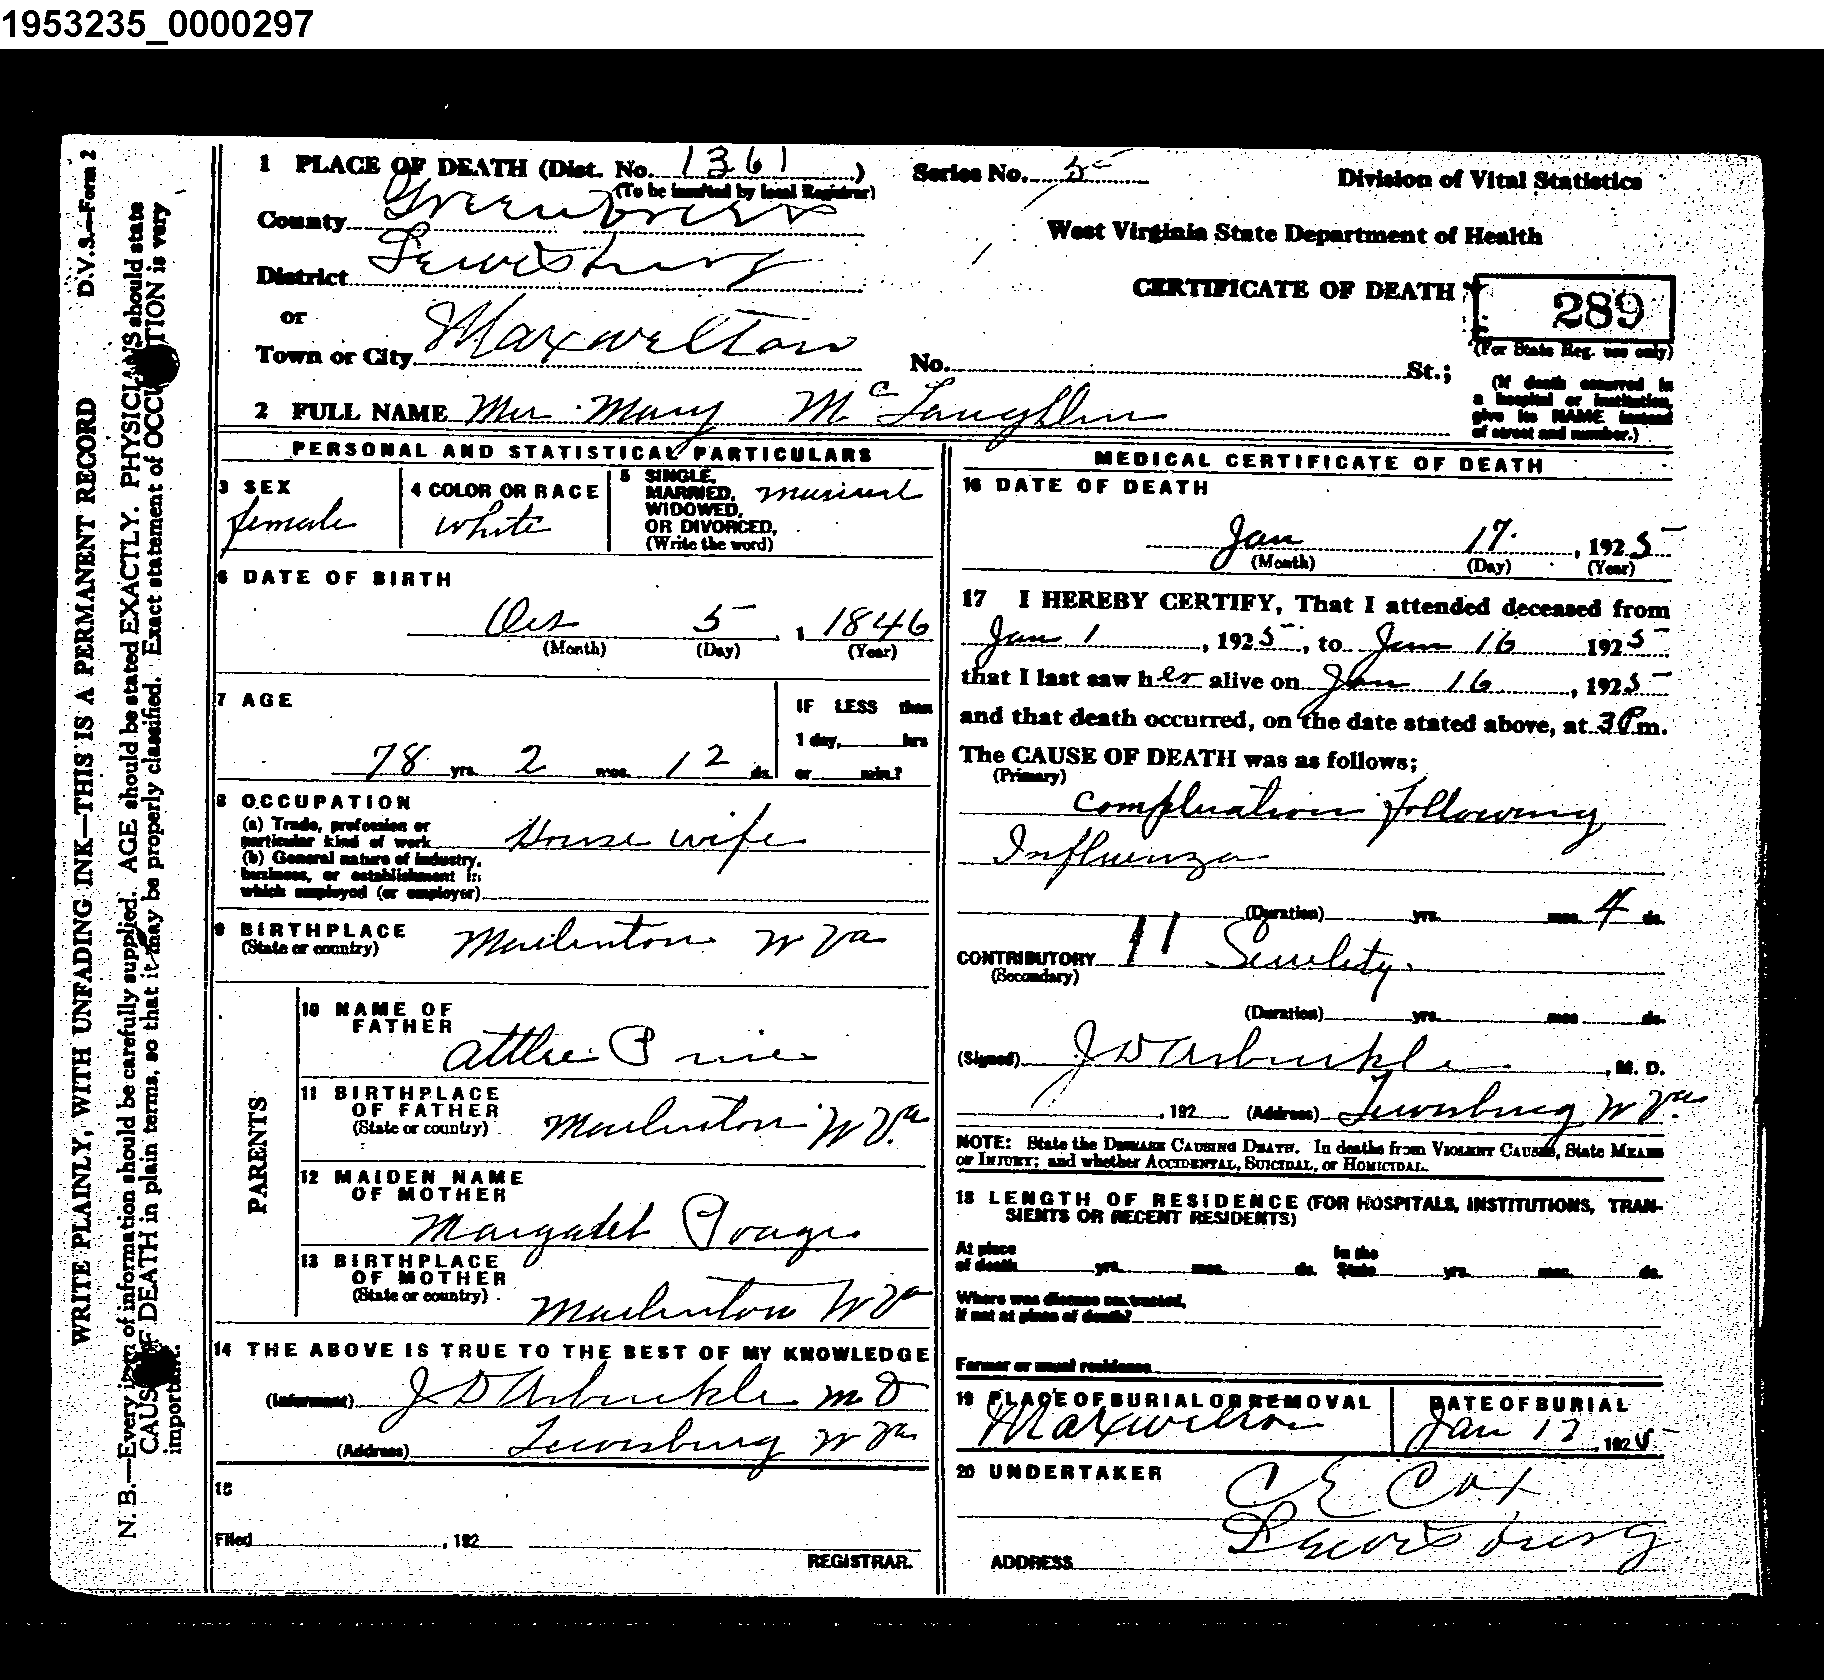 1953235_0000297
D.V.S.—Form 2
WRITE PLAINLY, WITH UNFADING INK—THIS IS A PERMANENT RECORD
N. B.—Every item of information should be carefully supplied. AGE should be stated EXACTLY. PHYSICIANS should state
CAUSE OF DEATH in plain terms, so that it may be properly classified. Exact statement of OCCUPATION is very
important.
1 PLACE OF DEATH (Dist. No. 1361 ) Series No. 5
(To be inserted by local Registrar)
Division of Vital Statistics
County Greenbrier
West Virginia State Department of Health
District Lewisburg
CERTIFICATE OF DEATH
289
(For State Reg. use only)
or
Town or City Maxwelton
No. St.;
(If death occurred in
a hospital or institution,
give its NAME instead
of street and number.)
2 FULL NAME Mrs Mary McLaughlin
PERSONAL AND STATISTICAL PARTICULARS
3 SEX
female
4 COLOR OR RACE
white
5 SINGLE,
MARRIED,
WIDOWED,
OR DIVORCED,
(Write the word)
married
6 DATE OF BIRTH
5 , 1846
(Month) (Day) (Year)
7 AGE
78 yrs. 2 mos. 12 ds.
IF LESS than
1 day, hrs
or min.?
8 OCCUPATION
(a) Trade, profession or
particular kind of work House wife
(b) General nature of industry,
business, or establishment in
which employed (or employer)
9 BIRTHPLACE
(State or country) Marlinton W Va
PARENTS
10 NAME OF
FATHER
Attlee Price
11 BIRTHPLACE
OF FATHER
(State or country) Marlinton W Va
12 MAIDEN NAME
OF MOTHER
Margaret Poage
13 BIRTHPLACE
OF MOTHER
(State or country) Marlinton W Va
14 THE ABOVE IS TRUE TO THE BEST OF MY KNOWLEDGE
(Informant) J D Arbuckle M D
(Address) Lewisburg W Va
15
Filed , 192
REGISTRAR.
MEDICAL CERTIFICATE OF DEATH
16 DATE OF DEATH
Jan 17. , 1925
(Month) (Day) (Year)
17 I HEREBY CERTIFY, That I attended deceased from
Jan 1 , 1925 , to Jan 16 1925
that I last saw her alive on Jan 16 , 1925
and that death occurred, on the date stated above, at 3 P m.
The CAUSE OF DEATH was as follows;
(Primary)
Complication following
Influenza
(Duration) yrs. mos. 4 ds.
CONTRIBUTORY 11 Senility.
(Secondary)
(Duration) yrs. mos ds.
(Signed) J D Arbuckle , M. D.
, 192 (Address) Lewisburg W Va
NOTE: State the DISEASE CAUSING DEATH. In deaths from VIOLENT CAUSES, State MEANS
OF INJURY; and whether ACCIDENTAL, SUICIDAL, or HOMICIDAL.
18 LENGTH OF RESIDENCE (FOR HOSPITALS, INSTITUTIONS, TRAN-
SIENTS OR RECENT RESIDENTS)
At place
of death yrs. mos. ds.
In the
State yrs. mos. ds.
Where was disease contracted,
if not at place of death?
Former or usual residence
19 PLACE OF BURIAL OR REMOVAL
Maxwelton
DATE OF BURIAL
Jan , 1925
20 UNDERTAKER
C E Cox
Lewisburg
ADDRESS